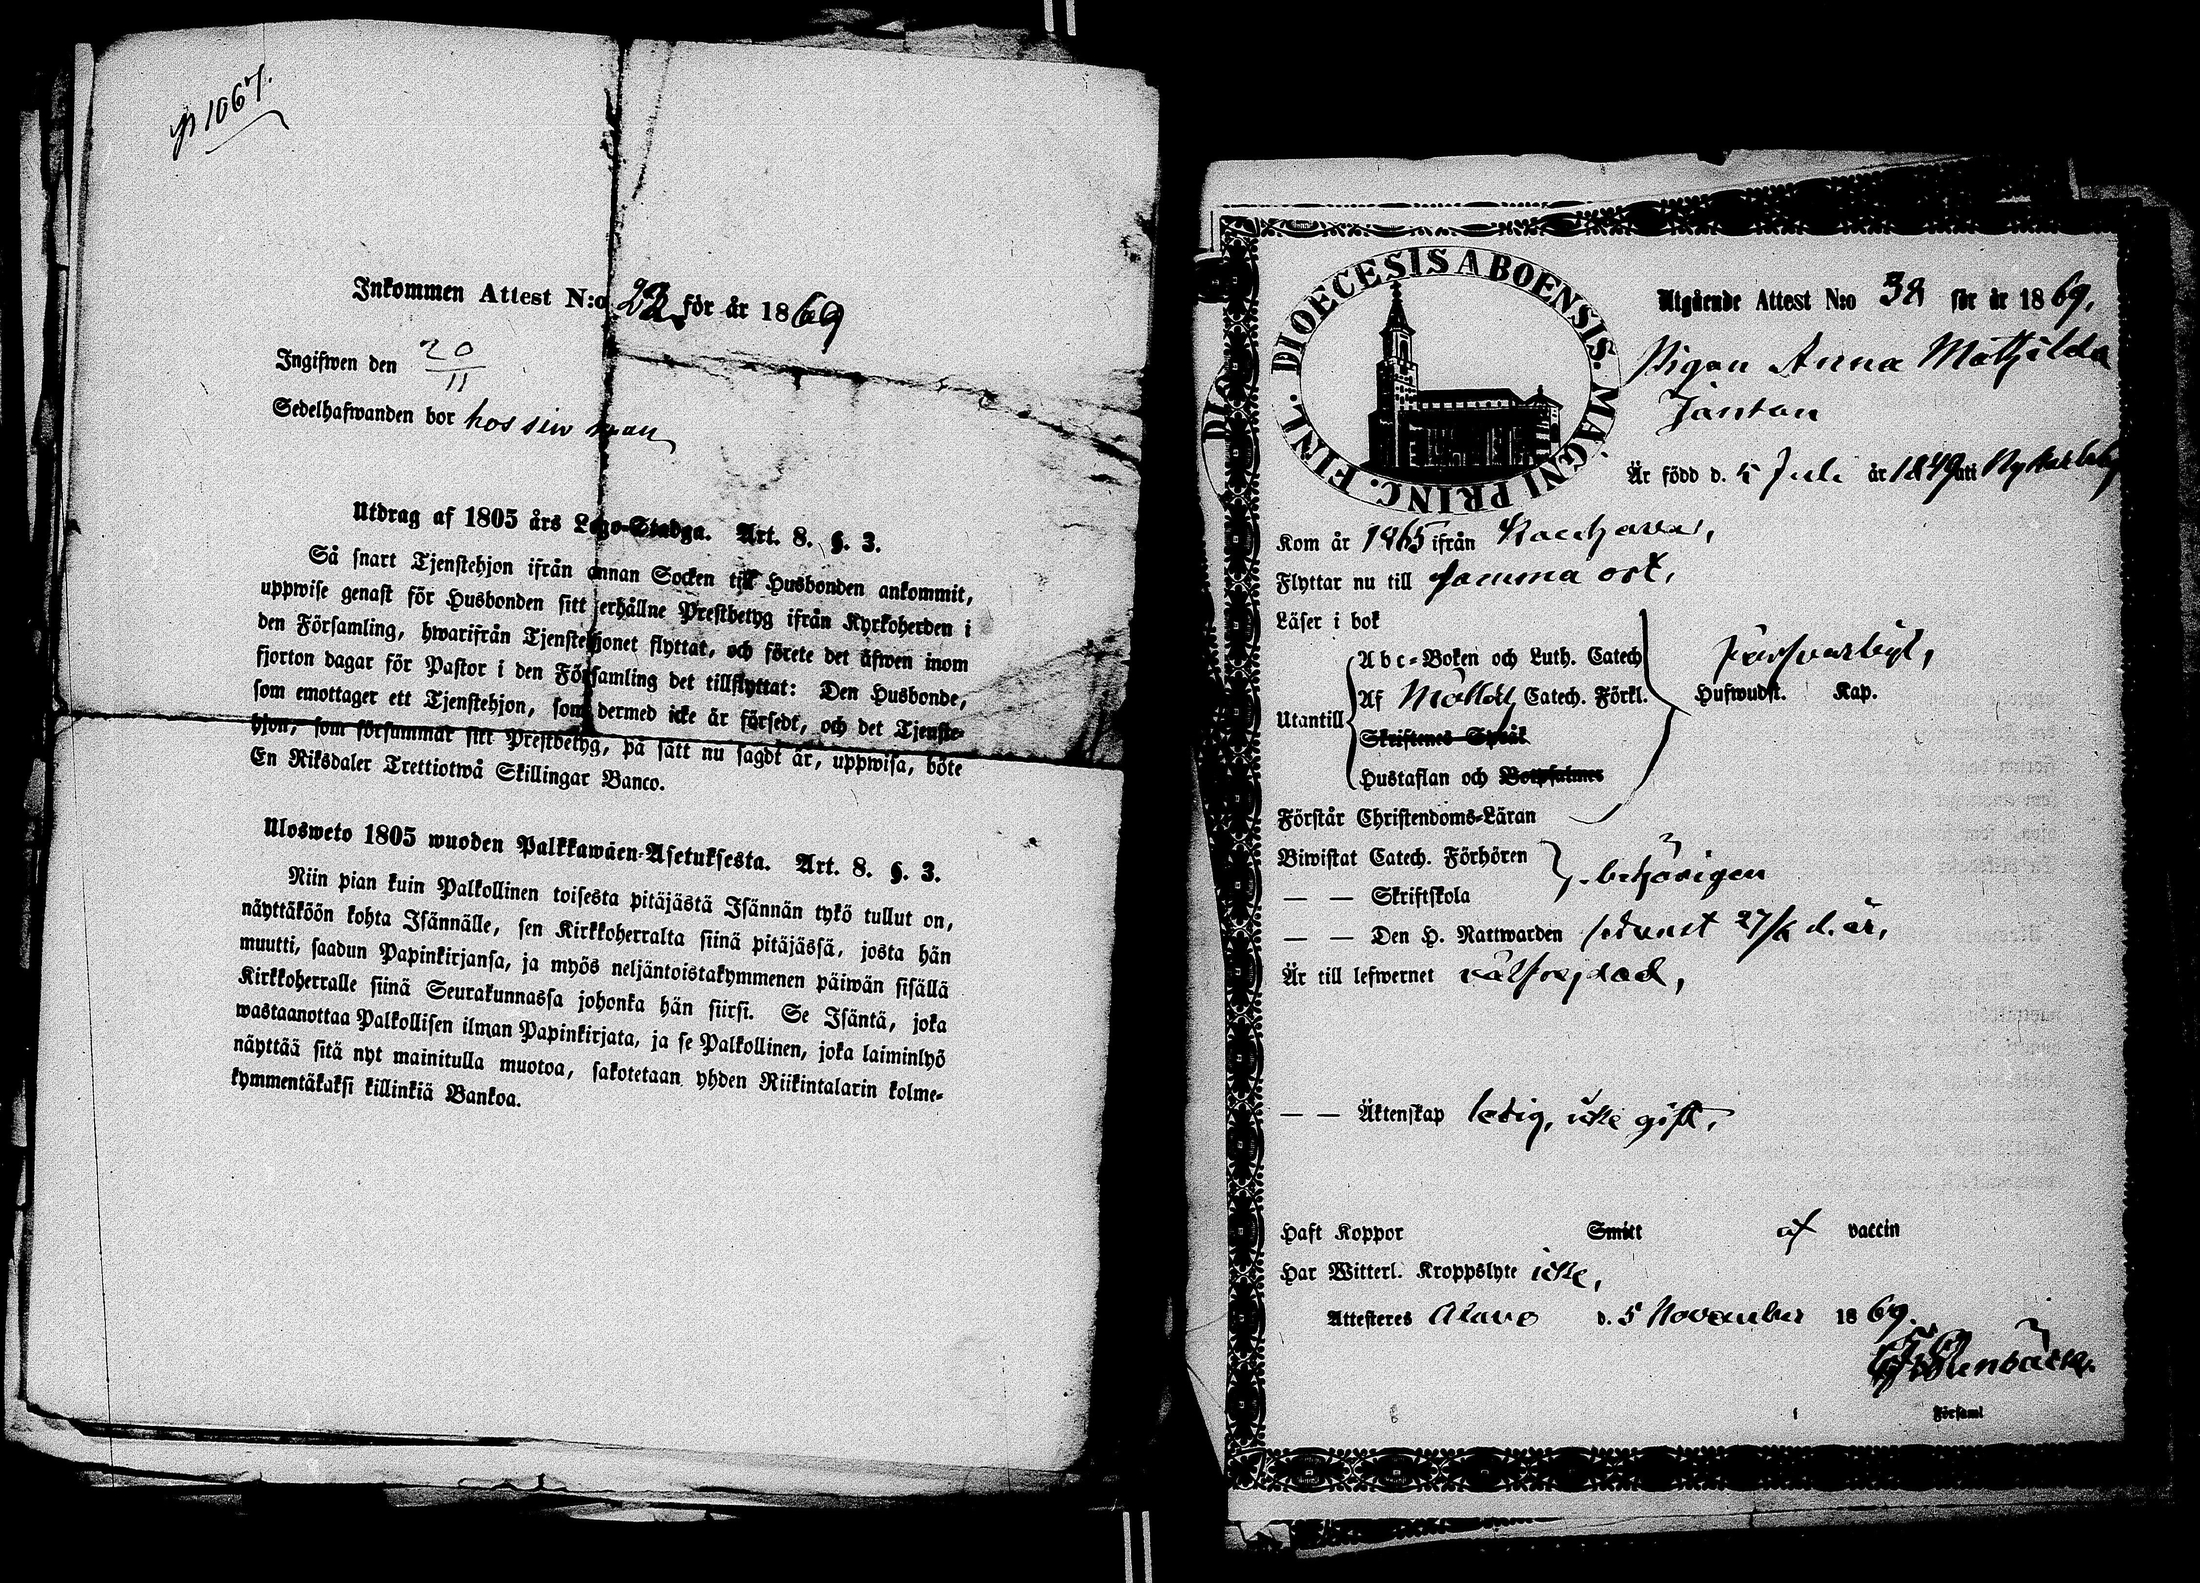 p 1067.
Inkommen Attest N:o 22 för år 1869
Ingifwen den 20/11
Sedelhafwanden bor hos sin
Utdrag af 1805 års Lego-Stadga. Art. 8. §. 3.
Så snart Tjenstehjon ifrån annan Socken till Husbonden ankommit,
uppwise genast för Husbonden sitt erhållne Prestbetyg ifrån Kyrkoherden i
den Församling, hwarifrån Tjenstehjonet flyttat, och förete det äfwen inom
fjorton dagar för Pastor i den Församling det tillflyttat: Den Husbonde,
som emottager ett Tjenstehjon, som dermed icke är försedt, och det Tjenste-
hjon, som försummar sitt Prestbetyg, på sätt nu sagdt är, uppwisa, böte
En Riksdaler Trettiotwå Skillingar Banco.
Ulosweto 1805 wuoden Palkkawäen-Asetuksesta. Art. 8. §. 3.
Niin pian kuin Palkollinen toisesta pitäjästä Isännän tykö tullut on,
näyttäköön kohta Isännälle, sen Kirkkoherralta siinä pitäjässä, josta hän
muutti, saadun Papinkirjansa, ja myös neljäntoistakymmenen päiwän sisällä
Kirkkoherralle siinä Seurakunnassa johonka hän siirsi. Se Isäntä, joka
wastaanottaa Palkollisen ilman Papinkirjata, ja se Palkollinen, joka laiminlyö
näyttää sitä nyt mainitulla muotoa, sakotetaan yhden Riikintalarin kolme-
kymmentäkaksi killinkiä Bankoa.
DIOECESIS ABOENSIS. MAGNI PRINC. FINL.
Utgående Attest N:o 38 för år 1869.
Pigan Anna Mathilda
Är född d. 5 Juli år 1849 uti Nykarleby
Kom år 1865 ifrån
Flyttar nu till samma ort,
Läser i bok
Abc-Boken och Luth. Catech
försvarligt,
Af Catech. Förkl.
Hufwudst. Kap.
Utantill
Skriftenes Språk
Hustaflan och Botpsalmer
Förstår Christendoms-Läran
Biwistat Catech. Förhören
behörigen
— — Skriftskola
— — Den H. Nattwarden senast 27/6 d. år,
Är till lefwernet välfrejdad,
— — Äktenskap ledig, icke gift,
Haft Koppor Smitt af vaccin
Har Witterl. Kroppslyte icke,
Attesteres Alavo d. 5 November 1869.
Församl